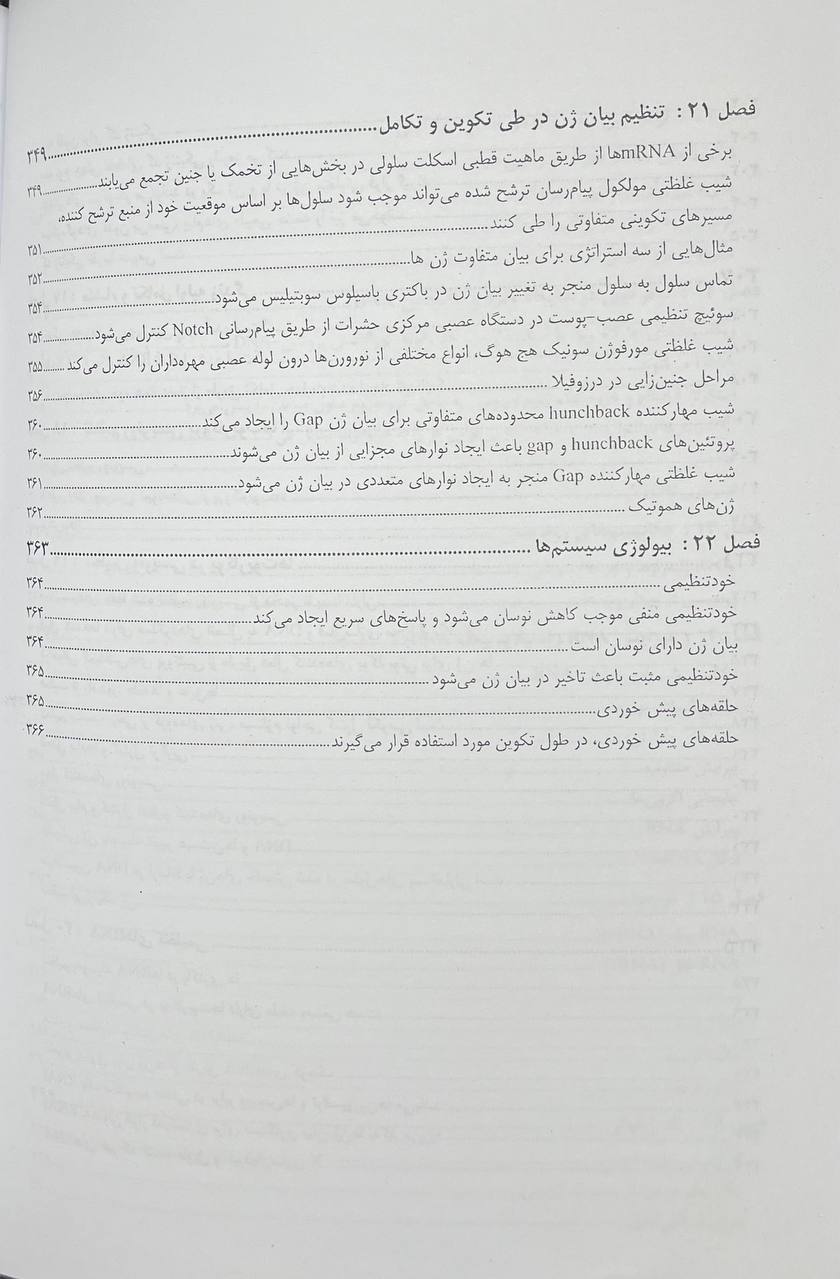 فصل ۲۱: تنظیم بیان ژن در طی تکوین و تکامل ۳۴۹
برخی از mRNAها از طریق ماهیت قطبی اسکلت سلولی در بخش‌هایی از تخمک یا جنین تجمع می‌یابند ۳۴۹
شیب غلظتی مولکول پیام‌رسان ترشح شده می‌تواند موجب شود سلول‌ها بر اساس موقعیت خود از منبع ترشح کننده،
مسیرهای تکوینی متفاوتی را طی کنند ۳۵۱
مثال‌هایی از سه استراتژی برای بیان متفاوت ژن ها ۳۵۲
تماس سلول به سلول منجر به تغییر بیان ژن در باکتری باسیلوس سوبتیلیس می‌شود ۳۵۴
سوئیچ تنظیمی عصب-پوست در دستگاه عصبی مرکزی حشرات از طریق پیام‌رسانی Notch کنترل می‌شود ۳۵۴
شیب غلظتی مورفوژن سونیک هج هوگ، انواع مختلفی از نورورن‌ها درون لوله عصبی مهره‌داران را کنترل می‌کند ۳۵۵
مراحل جنین‌زایی در درزوفیلا ۳۵۶
شیب مهارکننده hunchback محدوده‌های متفاوتی برای بیان ژن Gap را ایجاد می‌کند ۳۶۰
پروتئین‌های hunchback و gap باعث ایجاد نوارهای مجزایی از بیان ژن می‌شوند ۳۶۰
شیب غلظتی مهارکننده Gap منجر به ایجاد نوارهای متعددی در بیان ژن می‌شود ۳۶۱
ژن‌های هموتیک ۳۶۲
فصل ۲۲: بیولوژی سیستم‌ها ۳۶۳
خودتنظیمی ۳۶۴
خودتنظیمی منفی موجب کاهش نوسان می‌شود و پاسخ‌های سریع ایجاد می‌کند ۳۶۴
بیان ژن دارای نوسان است ۳۶۴
خودتنظیمی مثبت باعث تاخیر در بیان ژن می‌شود ۳۶۵
حلقه‌های پیش خوردی ۳۶۵
حلقه‌های پیش خوردی، در طول تکوین مورد استفاده قرار می‌گیرند ۳۶۶